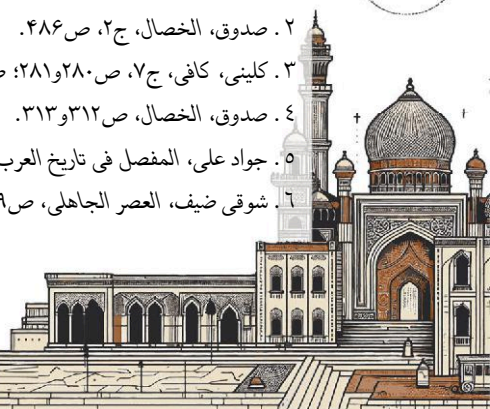 ٢. صدوق، الخصال، ج٢، ص۴٨۶.
٣. کلینی، کافی، ج٧، ص٢٨٠و٢٨١؛
٤. صدوق، الخصال، ص٣١٢و٣١٣.
٥. جواد علی، المفصل فی تاریخ العرب
٦. شوقی ضیف، العصر الجاهلی،